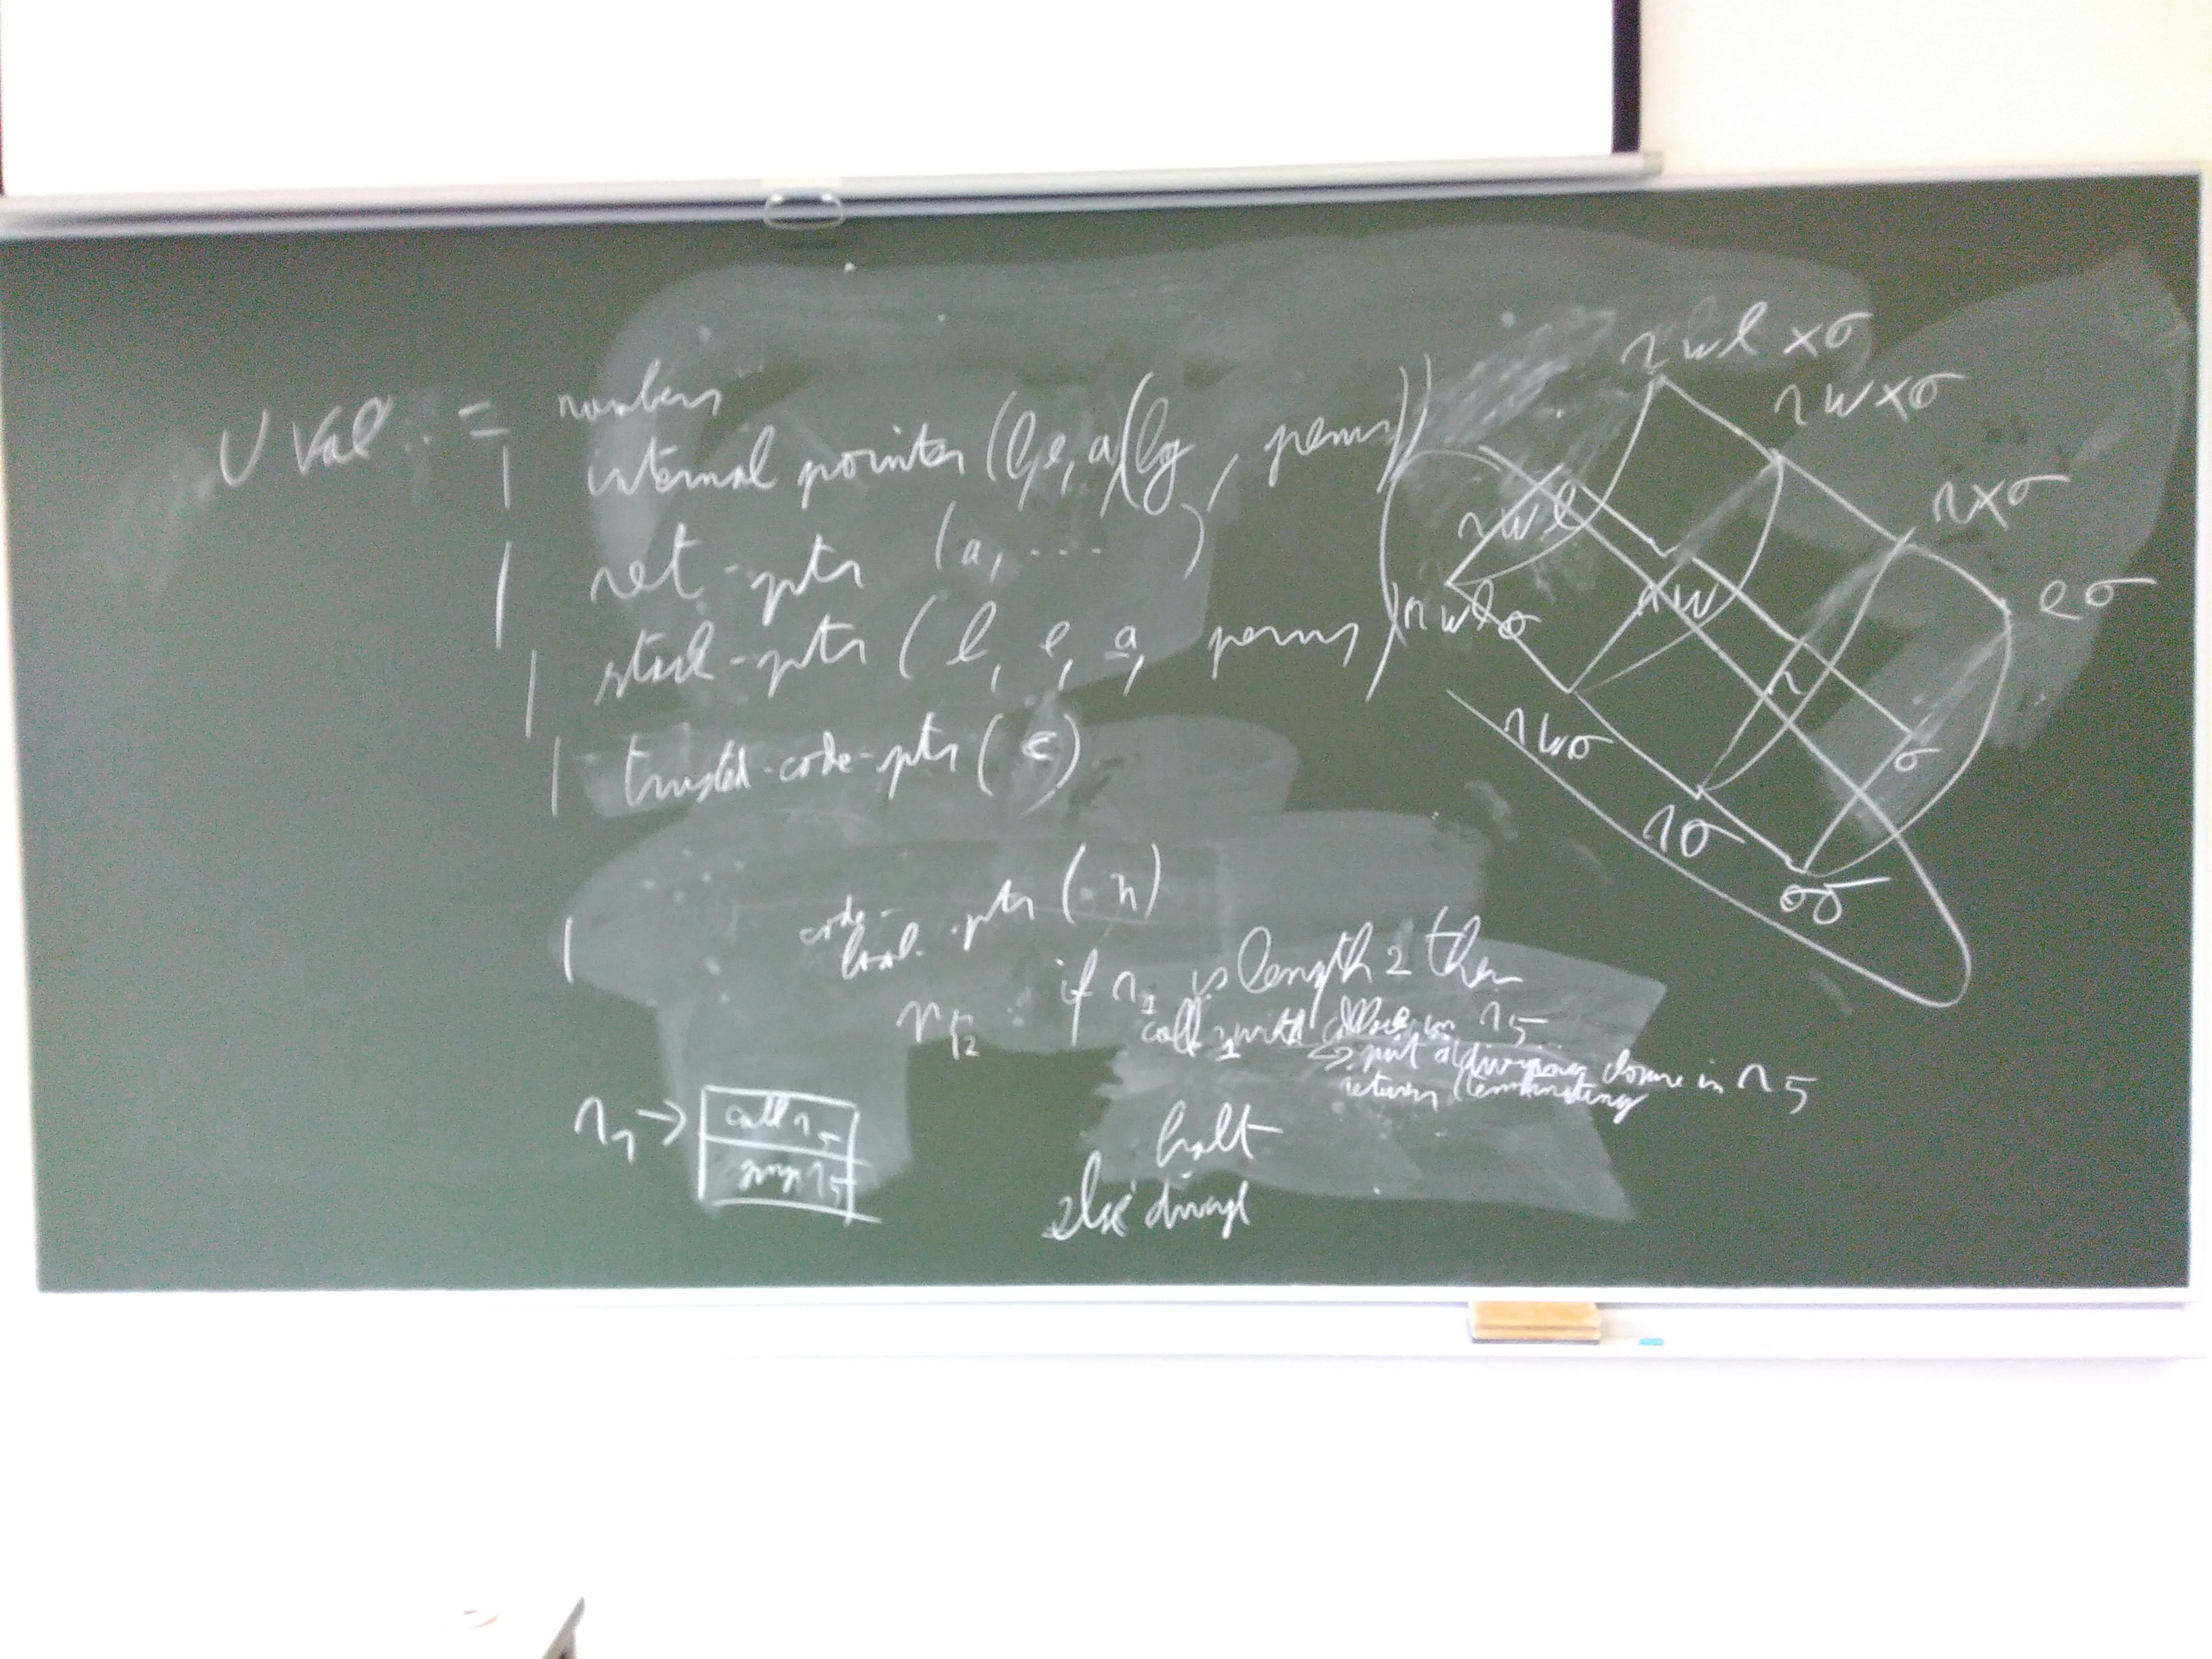 UVal ::= numbers
| internal pointer (b, e, a, (lg, perms))
| ret-ptr (a, ... )
| stack-ptr (b, e, a, perms)
| trusted-code-ptr (c)
| code-ptr (n)
if r1 is length 2 then
call r1 with in r5
→ put a diverging closure in r5
return terminating
halt
else diverge
r1 →
call r5
jmp r5
rwlxσ
rwxσ
rxσ
eσ
rwl
rwlσ
rw
rwσ
r
rσ
σ
oσ